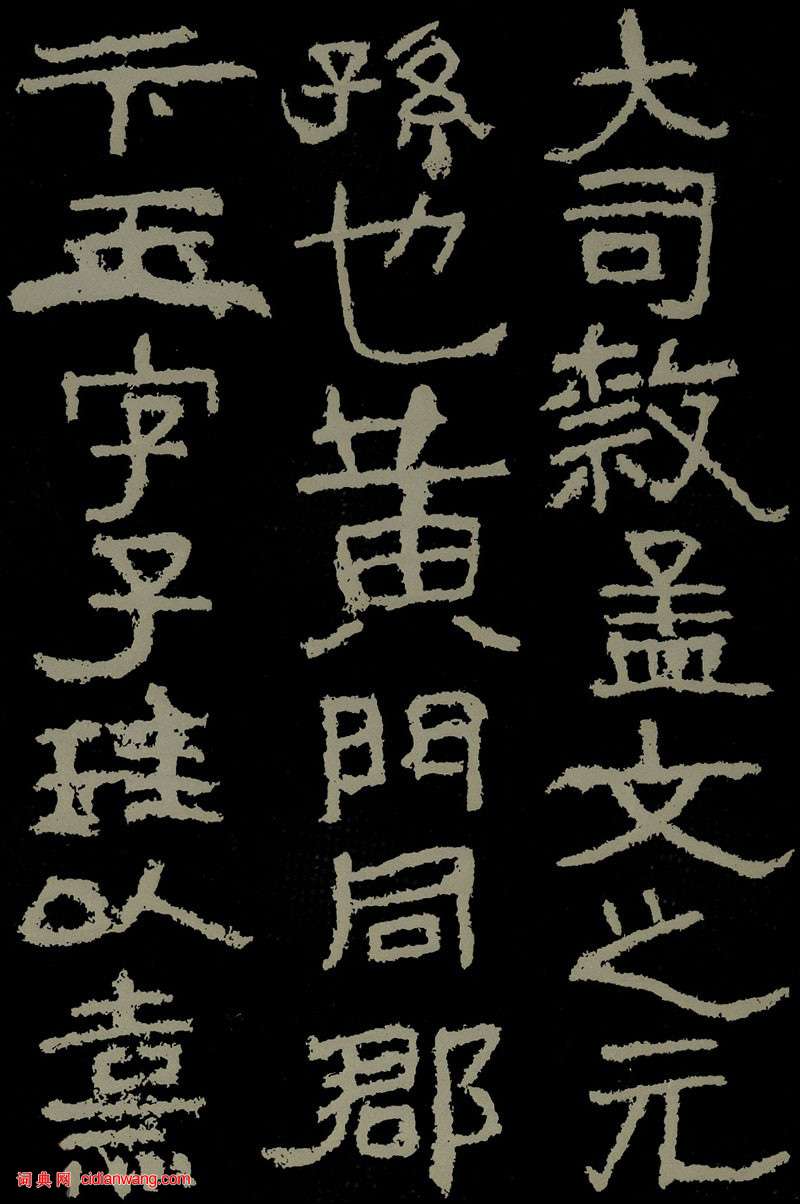 大司隸孟文之元
孫也黃門同郡
卞玉字子珪以熹
词典网 cidianwang.com